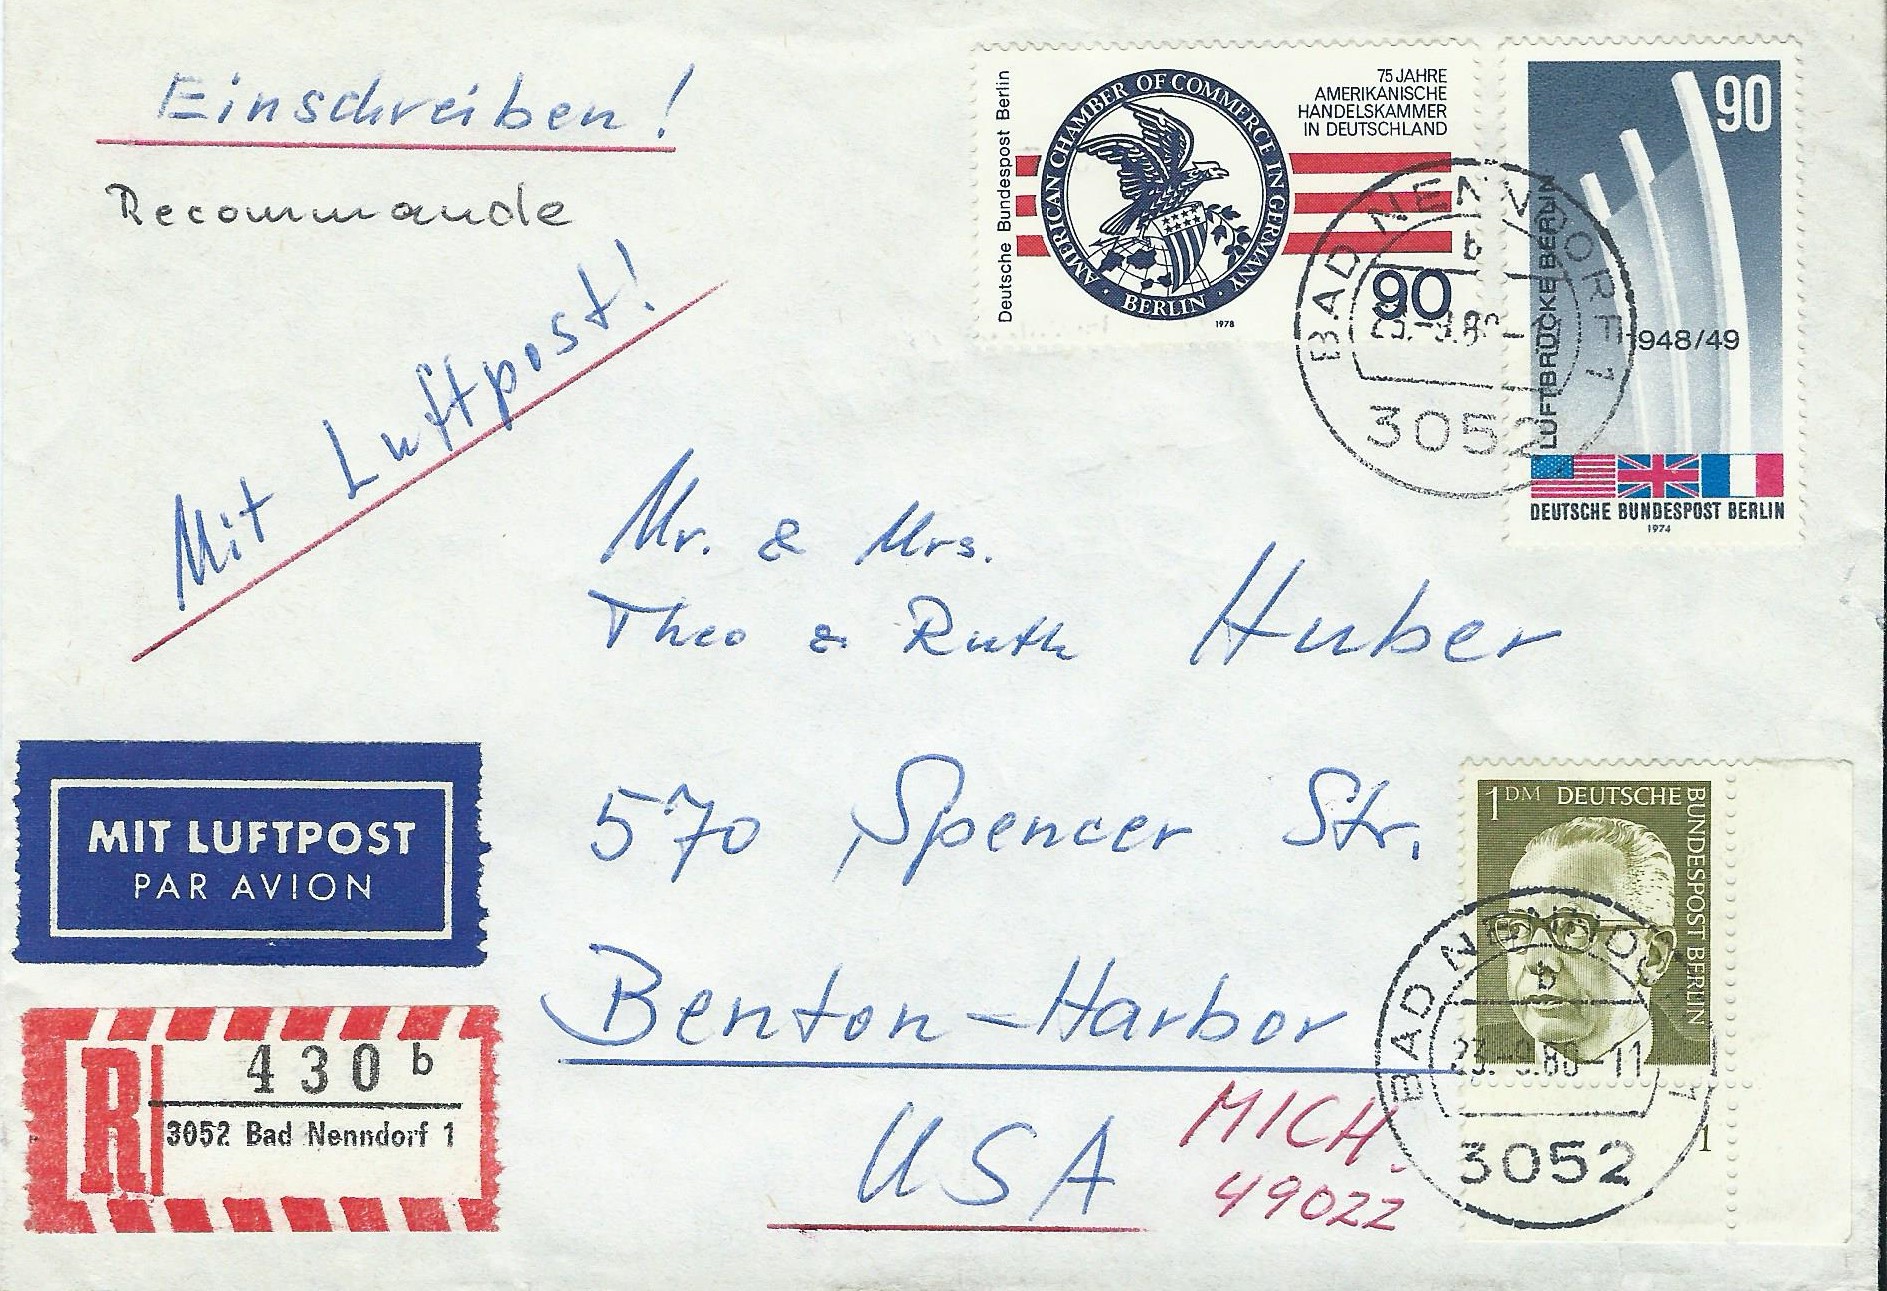 Einschreiben!
Recommande
Mit Luftpost!
Deutsche Bundespost Berlin
AMERICAN CHAMBER OF COMMERCE IN GERMANY
· BERLIN ·
75 JAHRE
AMERIKANISCHE
HANDELSKAMMER
IN DEUTSCHLAND
90
1978
90
LUFTBRÜCKE BERLIN
1948/49
DEUTSCHE BUNDESPOST BERLIN
1974
BAD NENNDORF 1
b
3052
Mr. & Mrs.
Theo & Ruth Huber
570 Spencer Str.
Benton-Harbor
USA
MICH.
49022
MIT LUFTPOST
PAR AVION
R
430 b
3052 Bad Nenndorf 1
1 DM DEUTSCHE
BUNDESPOST BERLIN
BAD NENNDORF 1
b
23.-9.80-11
3052
1